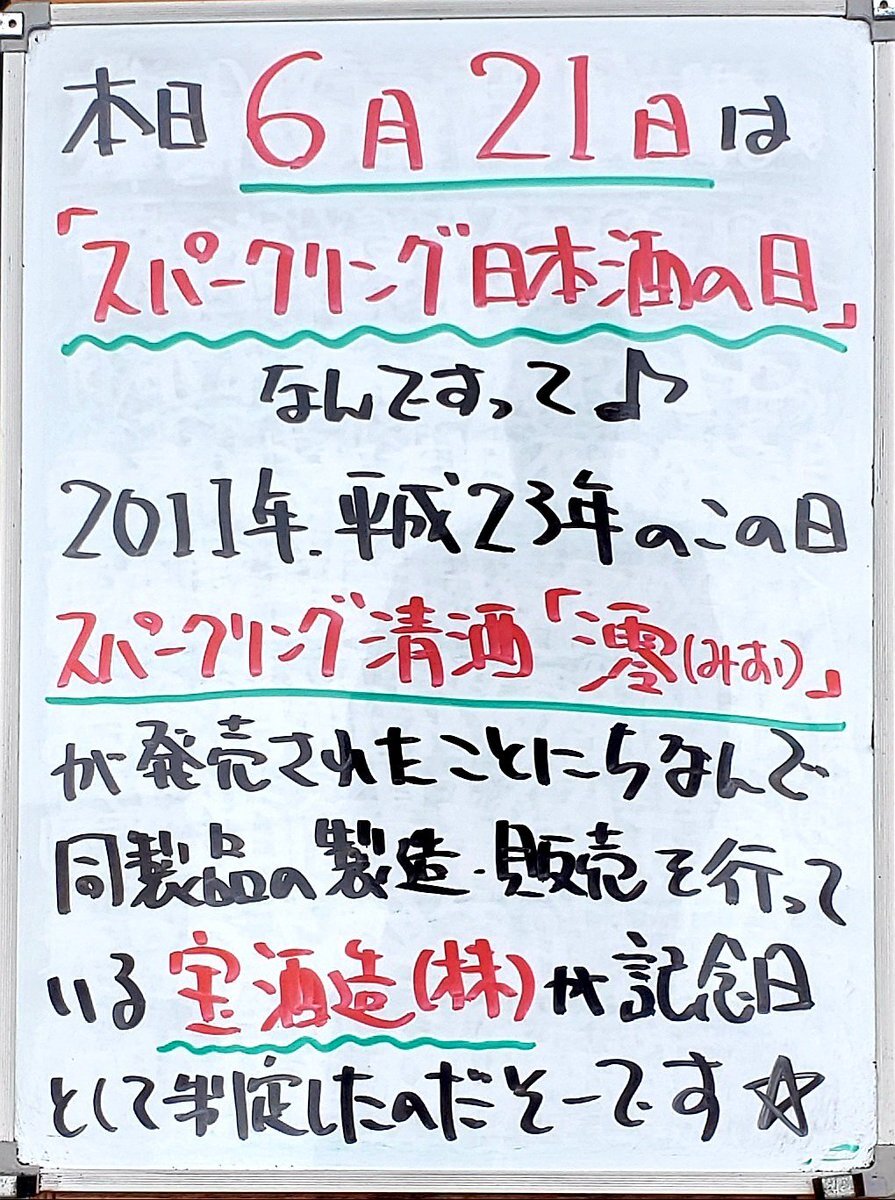 本日6月21日は
「スパークリング日本酒の日」
なんですって♪
2011年.平成23年のこの日
スパークリング清酒「澪(みお)」
が発売されたことにちなんで
同製品の製造・販売を行って
いる宝酒造(株)が記念日
として制定したのだそーです☆